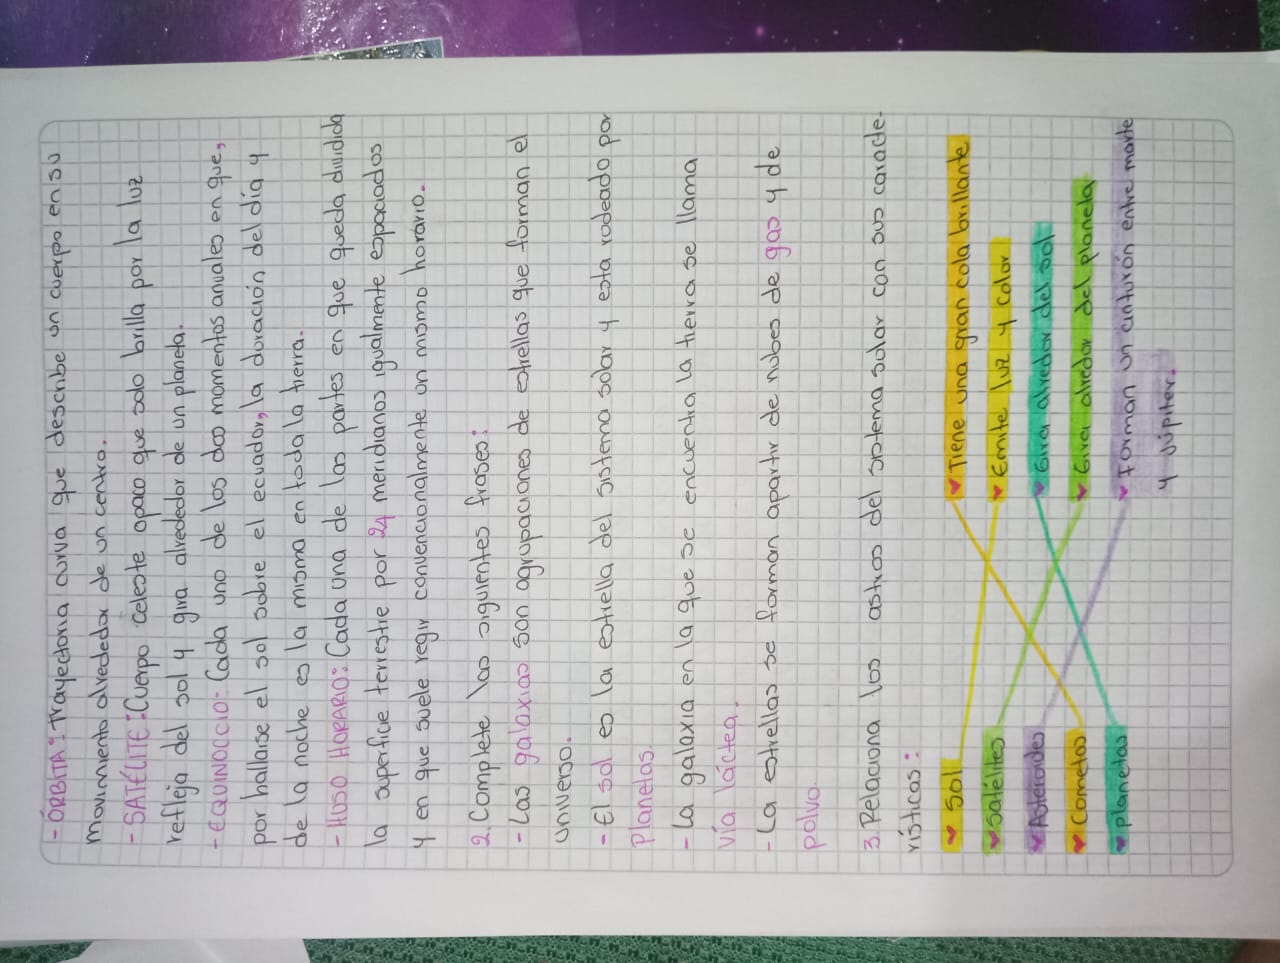 - ÓRBITA: Trayectoria curva que describe un cuerpo en su
movimiento alrededor de un centro.
- SATÉLITE: Cuerpo celeste opaco que solo brilla por la luz
refleja del sol y gira alrededor de un planeta.
- EQUINOCCIO: Cada uno de los dos momentos anuales en que,
por hallarse el sol sobre el ecuador, la duración del día y
de la noche es la misma en toda la tierra.
- HUSO HORARIO: Cada una de las partes en que queda dividida
la superficie terrestre por 24 meridianos igualmente espaciados
y en que suele regir convencionalmente un mismo horario.
2. Complete las siguientes frases:
- Las galaxias son agrupaciones de estrellas que forman el
universo.
- El sol es la estrella del sistema solar y esta rodeado por
Planetas.
- La galaxia en la que se encuentra la tierra se llama
vía láctea.
- La estrellas se forman apartir de nubes de gas y de
polvo
3. Relaciona los astros del sistema solar con sus caracte-
rísticas:
Sol
Satélites
Asteroides
Cometas
planetas
Tiene una gran cola brillante
Emite luz y color
Gira alredor del sol
Gira alredor del planeta
Forman un cinturón entre marte
y Júpiter.